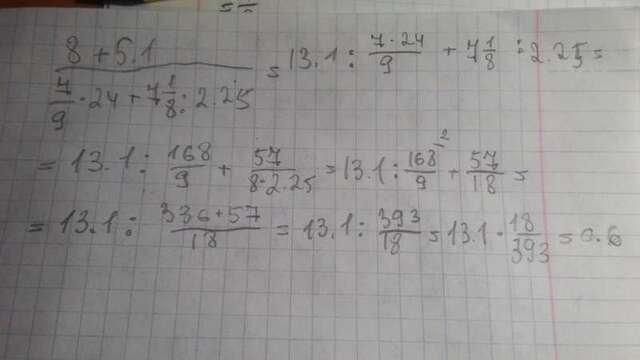 8 + 5.1 / 7/9 · 24 + 7 1/8 : 2.25 = 13.1 : 7·24/9 + 7 1/8 : 2.25 =
= 13.1 : 168/9 + 57/8·2.25 = 13.1 : 168/9 ² + 57/18 =
= 13.1 : 336+57/18 = 13.1 : 393/18 = 13.1 · 18/393 = 0.6